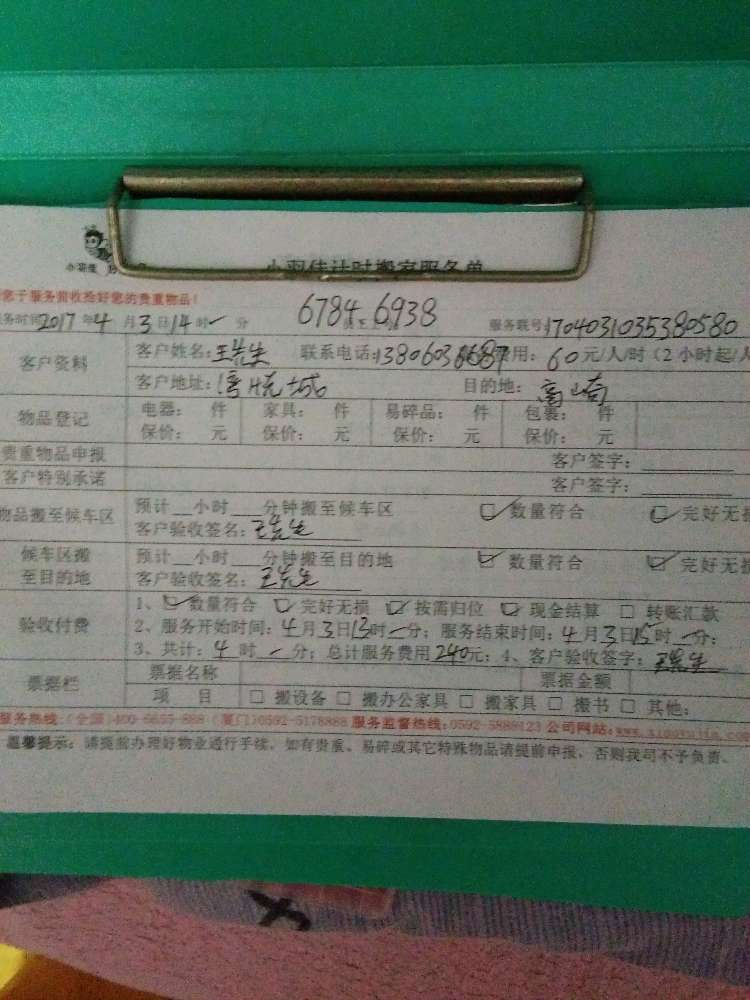 小羽佳计时搬家服务单
您于服务前收拾好您的贵重物品！
6784 6938
务时间2017年4月3日14时一分 服务联号:1704031035380580
客户资料 客户姓名:王先生 联系电话:13806036687 费用: 60元/人/时（2小时起/人
客户地址:湾悦城 目的地:高崎
物品登记 电器: 件 家具: 件 易碎品: 件 包裹: 件
保价: 元 保价: 元 保价: 元 保价: 元
贵重物品申报 客户签字:
客户特别承诺 客户签字:
物品搬至候车区 预计__小时___分钟搬至候车区 数量符合 完好无损
客户验收签名: 王先生
候车区搬至目的地 预计__小时___分钟搬至目的地 数量符合 完好无损
客户验收签名: 王先生
验收付费 1、数量符合 完好无损 按需归位 现金结算 □ 转账汇款
2、服务开始时间: 4月3日13时一分; 服务结束时间: 4月3日15时一分;
3、共计: 4时一分; 总计服务费用240元; 4、客户验收签字: 王先生
票据栏 票据名称 票据金额
项 目 □ 搬设备 □ 搬办公家具 □ 搬家具 □ 搬书 □ 其他:
服务热线:(全国)400-6655-888 (厦门)0592-5178888 服务监督热线:0592-5889123 公司网站:www.xiaoyujia.com
温馨提示: 请提前办理好物业通行手续，如有贵重、易碎或其它特殊物品请提前申报，否则我司不予负责。